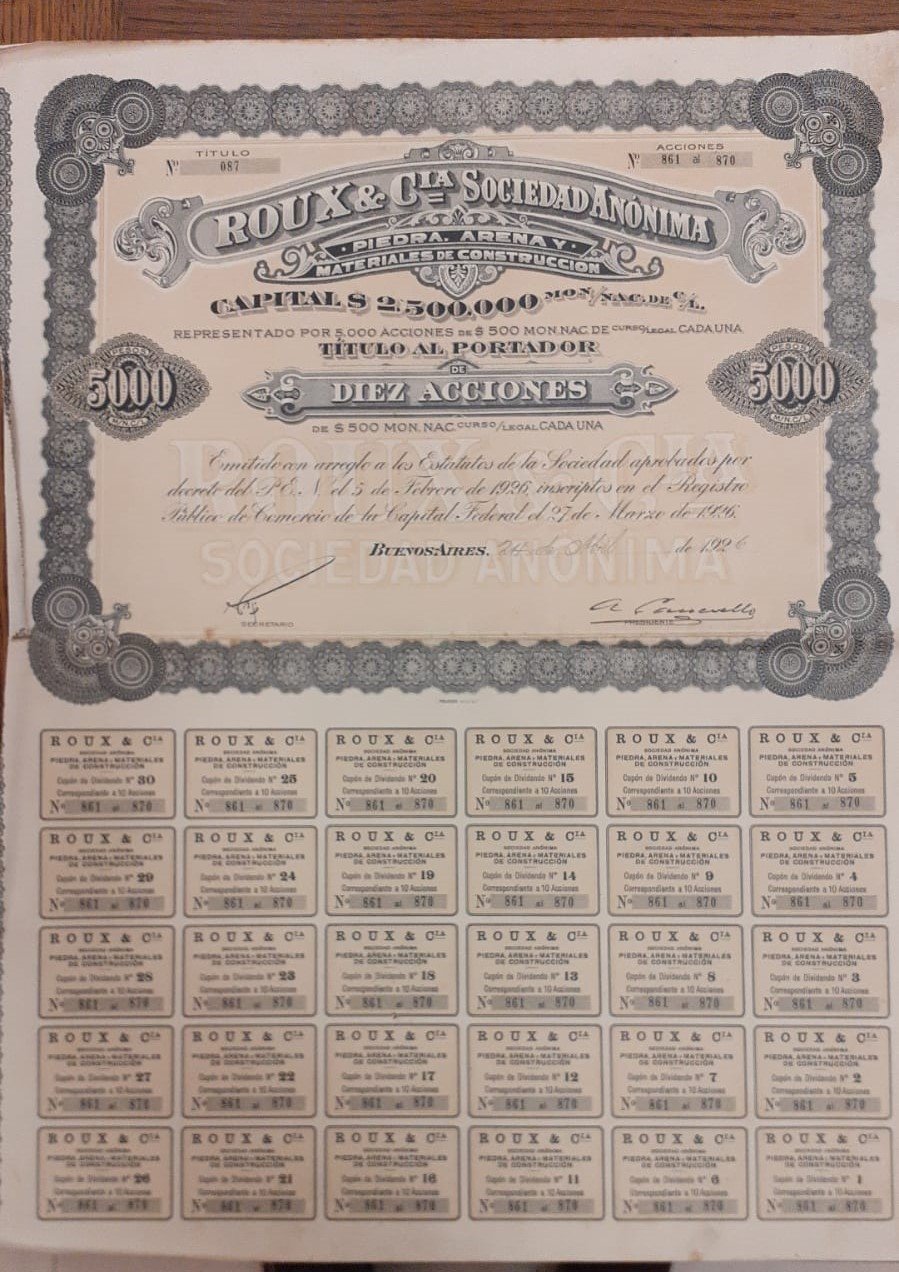 TÍTULO
Nº 087
ACCIONES
Nº 861 al 870
ROUX & CIA SOCIEDAD ANÓNIMA
PIEDRA, ARENA Y
MATERIALES DE CONSTRUCCION
CAPITAL $ 2.500.000 MON/NAC. DE C/L.
REPRESENTADO POR 5.000 ACCIONES DE $ 500 MON. NAC. DE CURSO/LEGAL CADA UNA
TÍTULO AL PORTADOR
DE
DIEZ ACCIONES
DE $ 500 MON. NAC CURSO/LEGAL CADA UNA
PESOS
5000
M/N. C/L.
PESOS
5000
M/N. C/L.
ROUX & CIA
SOCIEDAD ANÓNIMA
Emitido con arreglo a los Estatutos de la Sociedad aprobados por
decreto del P. E. N. el 5 de Febrero de 1926, inscriptos en el Registro
Público de Comercio de la Capital Federal el 27 de Marzo de 1926.
BUENOS AIRES, 24 de Abril de 1926
SECRETARIO
PRESIDENTE
ROUX & CIA
SOCIEDAD ANÓNIMA
PIEDRA, ARENA Y MATERIALES
DE CONSTRUCCIÓN
Cupón de Dividendo Nº 30
Correspondiente a 10 Acciones
Nº 861 al 870
ROUX & CIA
SOCIEDAD ANÓNIMA
PIEDRA, ARENA Y MATERIALES
DE CONSTRUCCIÓN
Cupón de Dividendo Nº 25
Correspondiente a 10 Acciones
Nº 861 al 870
ROUX & CIA
SOCIEDAD ANÓNIMA
PIEDRA, ARENA Y MATERIALES
DE CONSTRUCCIÓN
Cupón de Dividendo Nº 20
Correspondiente a 10 Acciones
Nº 861 al 870
ROUX & CIA
SOCIEDAD ANÓNIMA
PIEDRA, ARENA Y MATERIALES
DE CONSTRUCCIÓN
Cupón de Dividendo Nº 15
Correspondiente a 10 Acciones
Nº 861 al 870
ROUX & CIA
SOCIEDAD ANÓNIMA
PIEDRA, ARENA Y MATERIALES
DE CONSTRUCCIÓN
Cupón de Dividendo Nº 10
Correspondiente a 10 Acciones
Nº 861 al 870
ROUX & CIA
SOCIEDAD ANÓNIMA
PIEDRA, ARENA Y MATERIALES
DE CONSTRUCCIÓN
Cupón de Dividendo Nº 5
Correspondiente a 10 Acciones
Nº 861 al 870
ROUX & CIA
SOCIEDAD ANÓNIMA
PIEDRA, ARENA Y MATERIALES
DE CONSTRUCCIÓN
Cupón de Dividendo Nº 29
Correspondiente a 10 Acciones
Nº 861 al 870
ROUX & CIA
SOCIEDAD ANÓNIMA
PIEDRA, ARENA Y MATERIALES
DE CONSTRUCCIÓN
Cupón de Dividendo Nº 24
Correspondiente a 10 Acciones
Nº 861 al 870
ROUX & CIA
SOCIEDAD ANÓNIMA
PIEDRA, ARENA Y MATERIALES
DE CONSTRUCCIÓN
Cupón de Dividendo Nº 19
Correspondiente a 10 Acciones
Nº 861 al 870
ROUX & CIA
SOCIEDAD ANÓNIMA
PIEDRA, ARENA Y MATERIALES
DE CONSTRUCCIÓN
Cupón de Dividendo Nº 14
Correspondiente a 10 Acciones
Nº 861 al 870
ROUX & CIA
SOCIEDAD ANÓNIMA
PIEDRA, ARENA Y MATERIALES
DE CONSTRUCCIÓN
Cupón de Dividendo Nº 9
Correspondiente a 10 Acciones
Nº 861 al 870
ROUX & CIA
SOCIEDAD ANÓNIMA
PIEDRA, ARENA Y MATERIALES
DE CONSTRUCCIÓN
Cupón de Dividendo Nº 4
Correspondiente a 10 Acciones
Nº 861 al 870
ROUX & CIA
SOCIEDAD ANÓNIMA
PIEDRA, ARENA Y MATERIALES
DE CONSTRUCCIÓN
Cupón de Dividendo Nº 28
Correspondiente a 10 Acciones
Nº 861 al 870
ROUX & CIA
SOCIEDAD ANÓNIMA
PIEDRA, ARENA Y MATERIALES
DE CONSTRUCCIÓN
Cupón de Dividendo Nº 23
Correspondiente a 10 Acciones
Nº 861 al 870
ROUX & CIA
SOCIEDAD ANÓNIMA
PIEDRA, ARENA Y MATERIALES
DE CONSTRUCCIÓN
Cupón de Dividendo Nº 18
Correspondiente a 10 Acciones
Nº 861 al 870
ROUX & CIA
SOCIEDAD ANÓNIMA
PIEDRA, ARENA Y MATERIALES
DE CONSTRUCCIÓN
Cupón de Dividendo Nº 13
Correspondiente a 10 Acciones
Nº 861 al 870
ROUX & CIA
SOCIEDAD ANÓNIMA
PIEDRA, ARENA Y MATERIALES
DE CONSTRUCCIÓN
Cupón de Dividendo Nº 8
Correspondiente a 10 Acciones
Nº 861 al 870
ROUX & CIA
SOCIEDAD ANÓNIMA
PIEDRA, ARENA Y MATERIALES
DE CONSTRUCCIÓN
Cupón de Dividendo Nº 3
Correspondiente a 10 Acciones
Nº 861 al 870
ROUX & CIA
SOCIEDAD ANÓNIMA
PIEDRA, ARENA Y MATERIALES
DE CONSTRUCCIÓN
Cupón de Dividendo Nº 27
Correspondiente a 10 Acciones
Nº 861 al 870
ROUX & CIA
SOCIEDAD ANÓNIMA
PIEDRA, ARENA Y MATERIALES
DE CONSTRUCCIÓN
Cupón de Dividendo Nº 22
Correspondiente a 10 Acciones
Nº 861 al 870
ROUX & CIA
SOCIEDAD ANÓNIMA
PIEDRA, ARENA Y MATERIALES
DE CONSTRUCCIÓN
Cupón de Dividendo Nº 17
Correspondiente a 10 Acciones
Nº 861 al 870
ROUX & CIA
SOCIEDAD ANÓNIMA
PIEDRA, ARENA Y MATERIALES
DE CONSTRUCCIÓN
Cupón de Dividendo Nº 12
Correspondiente a 10 Acciones
Nº 861 al 870
ROUX & CIA
SOCIEDAD ANÓNIMA
PIEDRA, ARENA Y MATERIALES
DE CONSTRUCCIÓN
Cupón de Dividendo Nº 7
Correspondiente a 10 Acciones
Nº 861 al 870
ROUX & CIA
SOCIEDAD ANÓNIMA
PIEDRA, ARENA Y MATERIALES
DE CONSTRUCCIÓN
Cupón de Dividendo Nº 2
Correspondiente a 10 Acciones
Nº 861 al 870
ROUX & CIA
SOCIEDAD ANÓNIMA
PIEDRA, ARENA Y MATERIALES
DE CONSTRUCCIÓN
Cupón de Dividendo Nº 26
Correspondiente a 10 Acciones
Nº 861 al 870
ROUX & CIA
SOCIEDAD ANÓNIMA
PIEDRA, ARENA Y MATERIALES
DE CONSTRUCCIÓN
Cupón de Dividendo Nº 21
Correspondiente a 10 Acciones
Nº 861 al 870
ROUX & CIA
SOCIEDAD ANÓNIMA
PIEDRA, ARENA Y MATERIALES
DE CONSTRUCCIÓN
Cupón de Dividendo Nº 16
Correspondiente a 10 Acciones
Nº 861 al 870
ROUX & CIA
SOCIEDAD ANÓNIMA
PIEDRA, ARENA Y MATERIALES
DE CONSTRUCCIÓN
Cupón de Dividendo Nº 11
Correspondiente a 10 Acciones
Nº 861 al 870
ROUX & CIA
SOCIEDAD ANÓNIMA
PIEDRA, ARENA Y MATERIALES
DE CONSTRUCCIÓN
Cupón de Dividendo Nº 6
Correspondiente a 10 Acciones
Nº 861 al 870
ROUX & CIA
SOCIEDAD ANÓNIMA
PIEDRA, ARENA Y MATERIALES
DE CONSTRUCCIÓN
Cupón de Dividendo Nº 1
Correspondiente a 10 Acciones
Nº 861 al 870